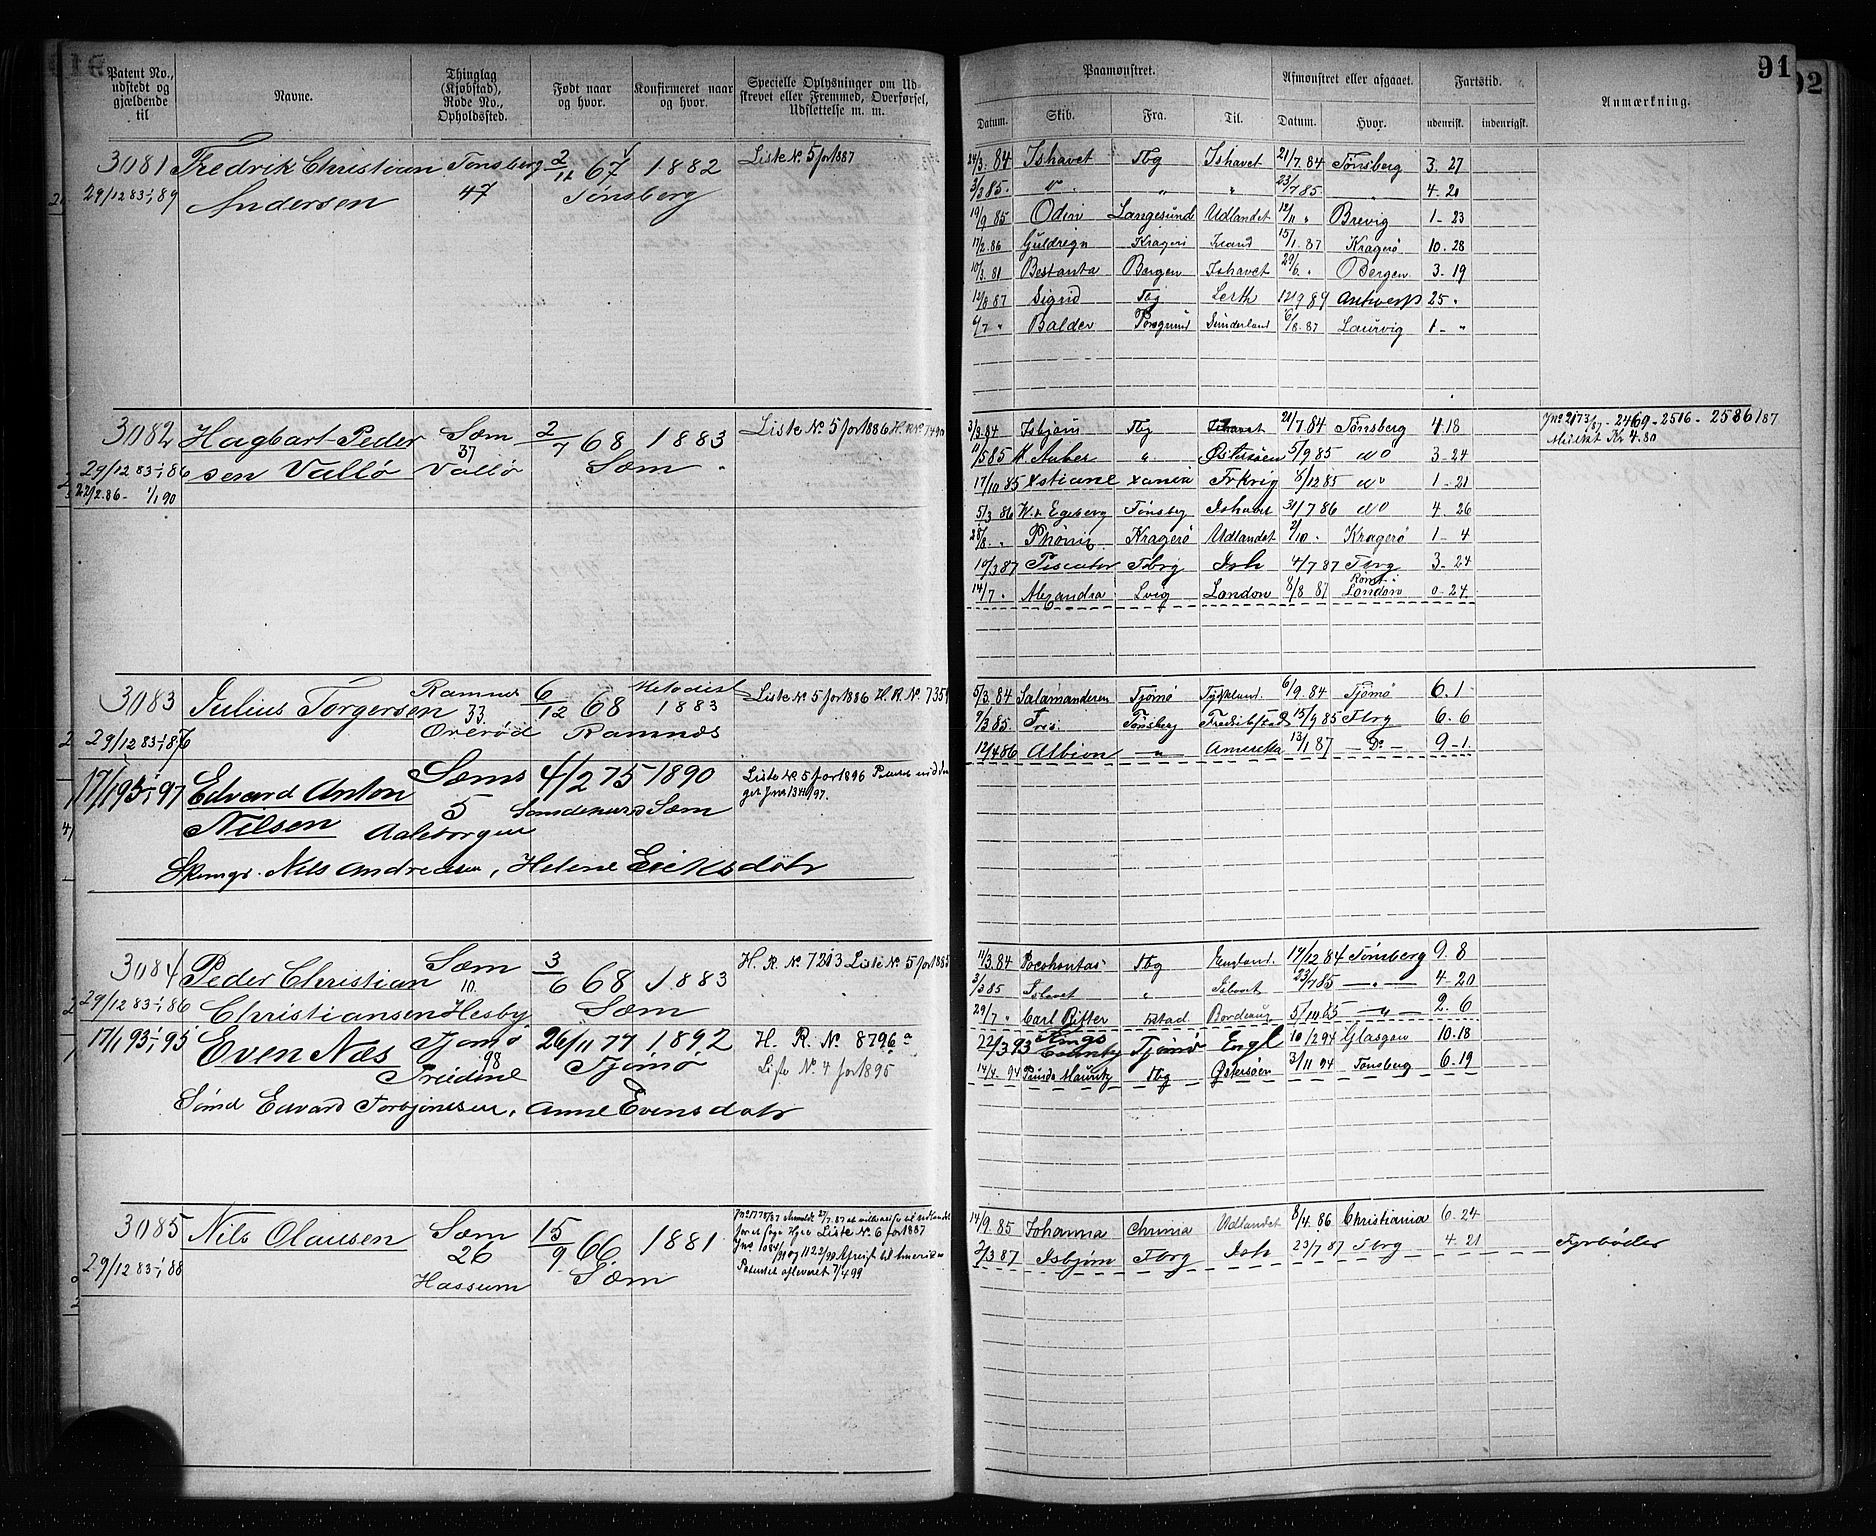 91
92
Patent No., udstedt og gjældende til
Navne.
Thinglag (Kjøbstad), Rode No., Opholdssted.
Født naar og hvor.
Konfirmeret naar og hvor.
Specielle Oplysninger om Udskrevet eller Fremmed, Overførsel, Udslettelse m. m.
Paamønstret.
Afmønstret eller afgaaet.
Fartstid.
Anmærkning.
Datum. Skib. Fra. Til. Datum. Hvor. udenrigsk. indenrigsk.
3081 Fredrik Christian Tønsberg 2/12 67 1882 Liste No. 5 for 1887
29/12 83 1/1 89 Andersen 47 Tønsberg
24/3. 84 Ishavet Tbg Ishavet 21/7. 84 Tønsberg 3. 27
3/3 85. do. " " 23/7 85 " 4. 20
19/9 85 Odin Langesund Udlandet 12/11 " Brevig 1- 23
17/2. 86 Guldregn Kragerø Irland 15/1. 87 Kragerø 10. 28
10/3. 81 Bestanta Bergen Ishavet 29/6. " Bergen 3- 19
12/8 87 Sigrid Tbg Leith 12/9 89 Antwerp 25 "
6/7 " Balder Porsgrund Sunderland 6/8. 87 Laurvig 1- "
3082 Hagbart Peder Sæm 2/7 68 1883 Liste No. 5 for 1886 H. R. No. 7490
29/12 83 1/1 86 sen Vallø 37 Vallø Sæm
22/2. 86- 1/1 90
3/3. 84 Isbjørn Tbg Ishavet 21/7. 84 Tønsberg 4. 18
11/5 85 H Anker " Østersøen 5/9 85 do 3- 24
17/10 85 Xstiane Xania Frkrig 8/12 85 do 1- 21
5/3 86 W. Egeberg Tønsbg Ishavet 31/7 86 do 4. 26
28/8. " Phønix Kragerø Udlandet 2/10 " Kragerø 1- 4
10/3 87 Piscator Tbrg Ish 4/7 87 Tbrg 3- 24
14/7 " Alexandra Lvig London 8/8 87 Rømt London 0- 24
Jno 2173/87 - 2469 - 2516 - 2586/87
Mulkt Kr 4.80
3083 Julius Torgersen Ramnes 6/12 68 Metodist 1883 Liste No. 5 for 1886 H. R. No. 7354
29/12 83 1/1 86 33. Overød Ramnæs
5/3. 84 Salamanderen Tjømø Tyskland. 6/9. 84 Tjømø 6. 1
9/3 85. Fris. Tønsberg Fredriksstad 15/9 85 Tbrg 6. 6
12/4 86 Albion " Amerika 13/1 87 - Do - 9-1
17/1 95 1/1 97 Edvard Anton Sæms 4/2 75 1890 Liste No. 5 for 1896
Nilsen 5 Sandeherred Sæm
Aaleborgen
Nils Andreasen, Helene Eriksdatr
3084 Peder Christian Sæm 3/6 68 1883 H. R. No. 7213 Liste No. 5 for 1885
29/12 83 1/1 86 Christiansen 10. Hesby Sæm
11/3. 84 Pocahontas Tbg England. 17/12 84 Tønsberg 9. 8
3/3 85 Ishavet " Ishavet 23/7 85 - " - 4- 20
29/7 " Carl Rifter Xstad Bordeaux 5/10 85 - " - 2. 6
17/1 93 1/1 95 Even Næs Tjømø 26/11 77 1892 H. R. No. 8796 a
98 Tjømø Liste No. 4 for 1895
Sømd Edvard Torbjørnsen, Anne Evensdatr
22/3 93 Kings County Tjømø Engl 10/2 94 Glasgow 10. 18
14/4. 94 Prinds Mauritz Tbg Østersøen 3/11 94 Tønsberg 6. 19
3085 Nils Olausen Sæm 15/9 66 1881
29/12 83 1/1 88 26 Hassum Sæm
Liste No. 6 for 1887
til Amerika
Patentet afleveret 7/4 99
14/9. 85 Johanna Xhania Udlandet 8/4. 86 Christiania 6. 24
2/3 87 Isbjørn Tbrg Ish 23/7 87 Tbrg 4. 21
Fyrbøder